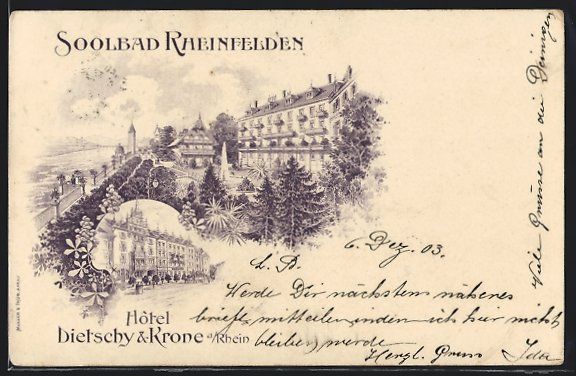 SOOLBAD RHEINFELDEN
Hôtel
Dietschy & Krone a/Rhein
6. Dez. 03.
L. B.
Werde Dir nächstens näheres
briefl. mitteilen, indem ich hier nicht
bleiben werde
Herzl. Gruss Ida
Viele Grüsse an die Deinigen